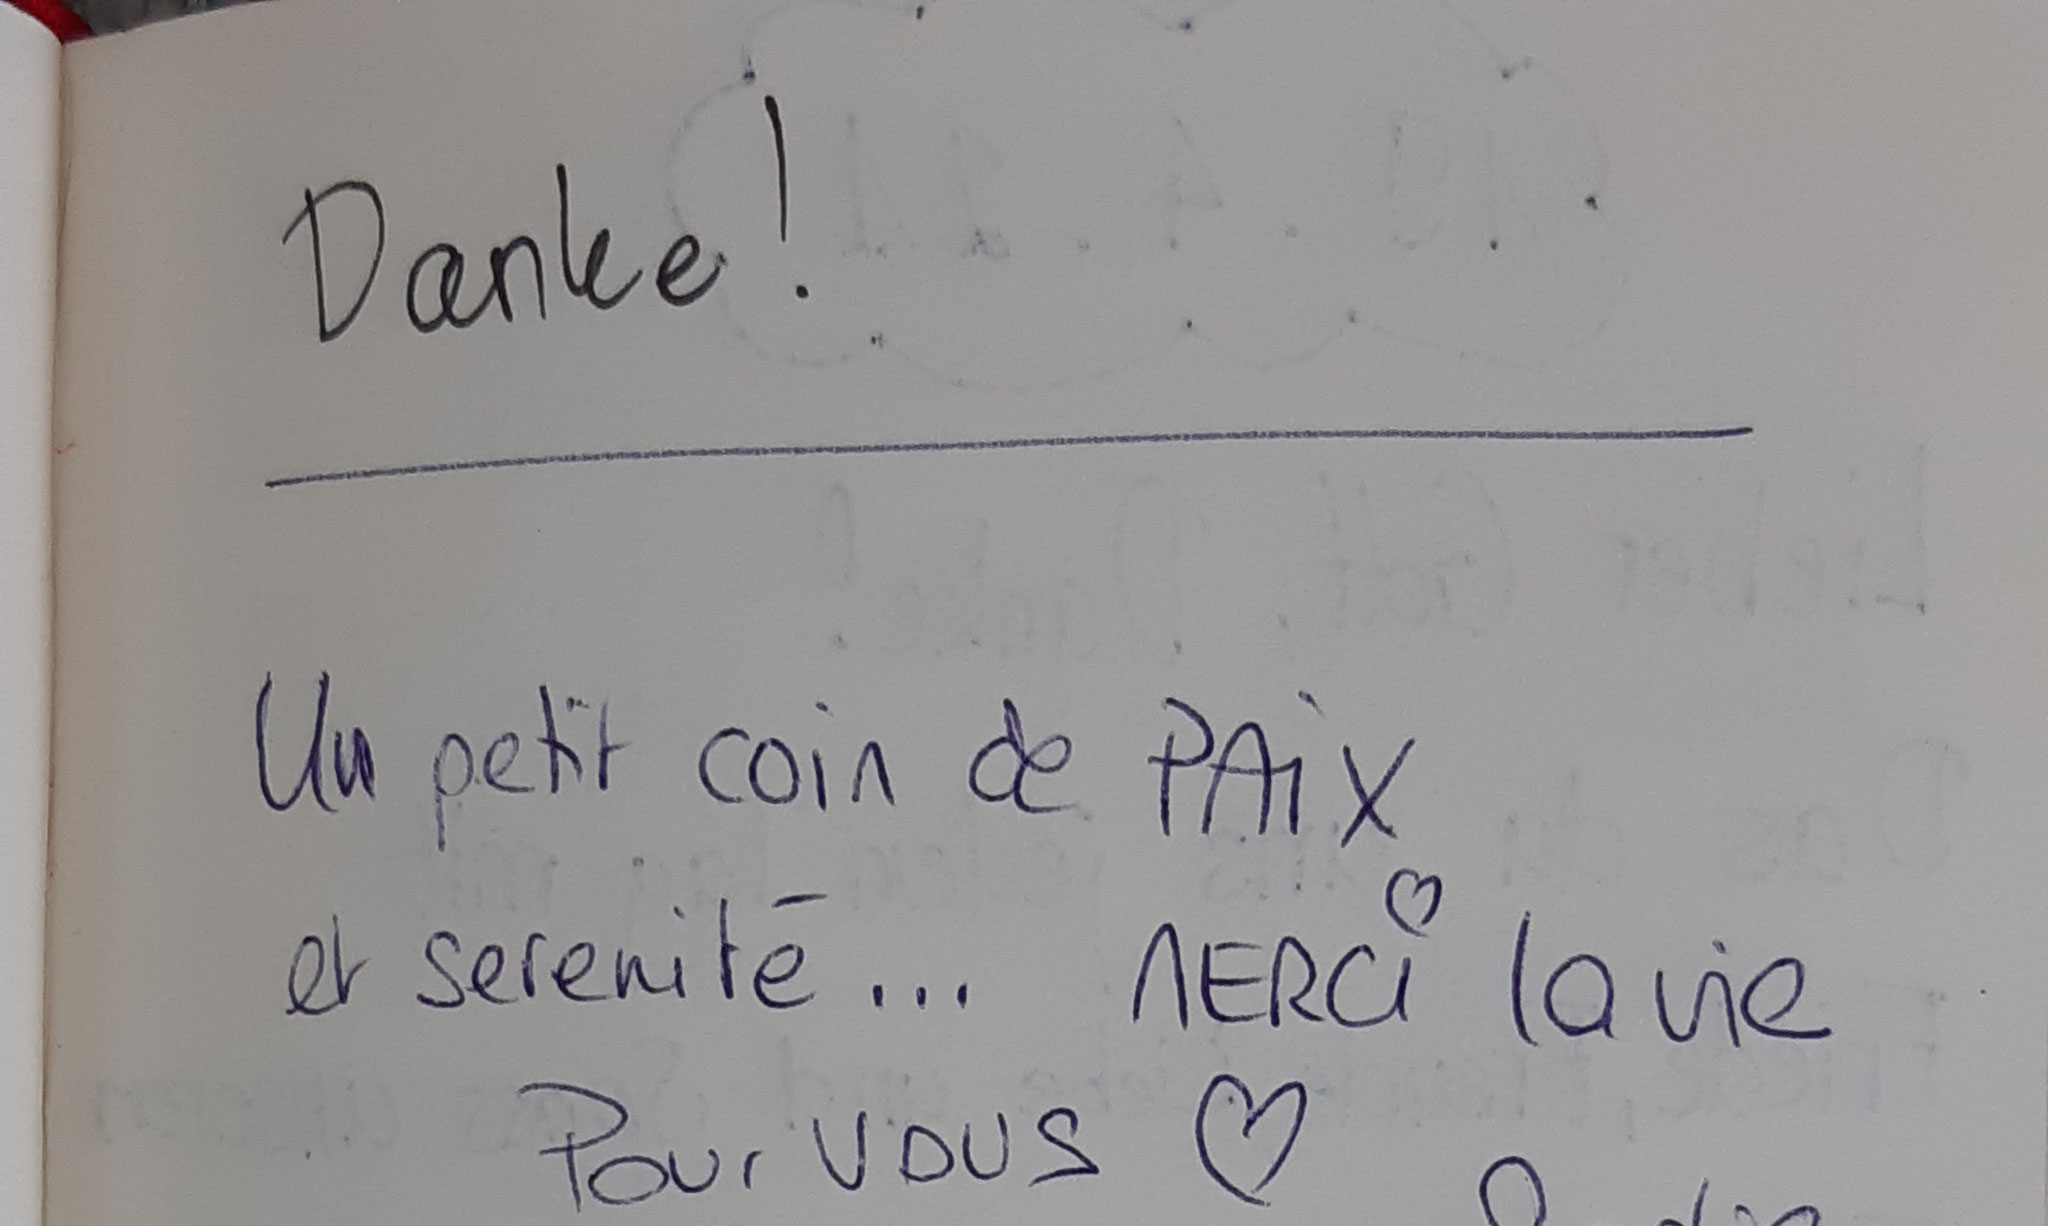 Danke!
Un petit coin de PAiX
et serenité... MERCi la vie
Pour VOUS ♡